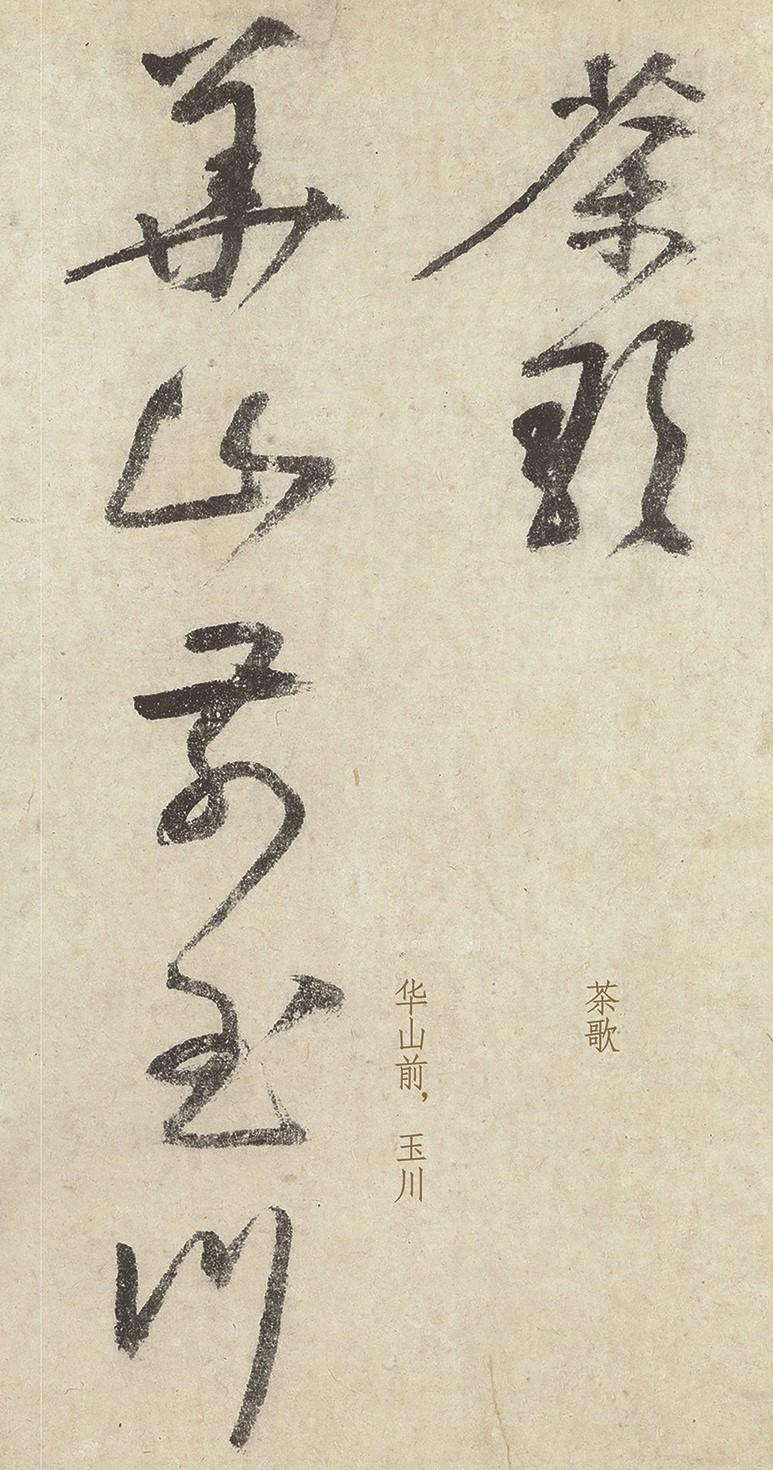 茶歌
茶歌
華山前玉川
华山前，玉川